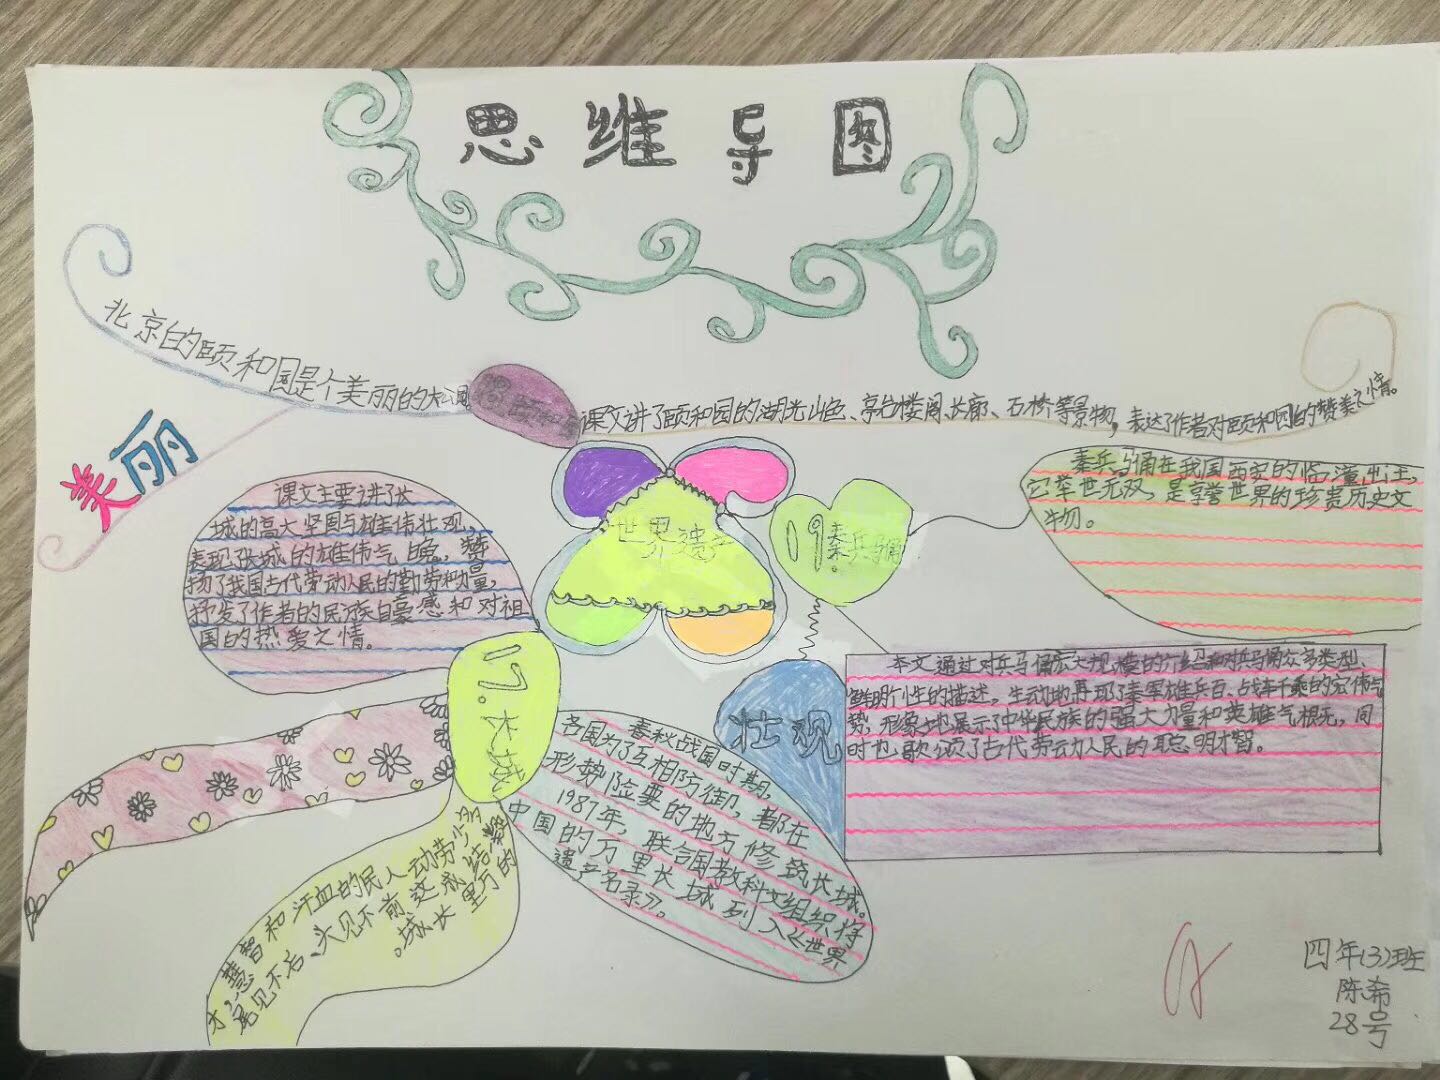 思维导图
北京的颐和园是个美丽的大公园
课文讲了颐和园的湖光山色、亭台楼阁、长廊、石桥等景物，表达了作者对颐和园的赞美之情。
美丽
世界遗产
课文主要讲了长
城的高大坚固与雄伟壮观，
表现张城的雄伟气魄，赞
扬了我国古代劳动人民的勤劳和力量，
抒发了作者的民族自豪感和对祖
国的热爱之情。
19秦兵马俑
秦兵马俑在我国西安的临潼出土，
它举世无双，是享誉世界的珍贵历史文
物。
17.长城
壮观
本文通过对兵马俑宏大规模的介绍和对兵马俑众多类型、
鲜明个性的描述，生动地再现了秦军雄兵百、战车千乘的宏伟气
势，形象地展示了中华民族的强大力量和英雄气根无，同
时也歌颂了古代劳动人民的聪明才智。
春秋战国时期，
各国为了互相防御，都在
形势险要的地方修筑长城。
1987年，联合国教科文组织将
中国的万里长城列入《世界
遗产名录》。
多少劳动人民的血汗和智慧，才
结成这前不见头、后不见尾
的万里长城。
A
四年(3)班
陈希
28号